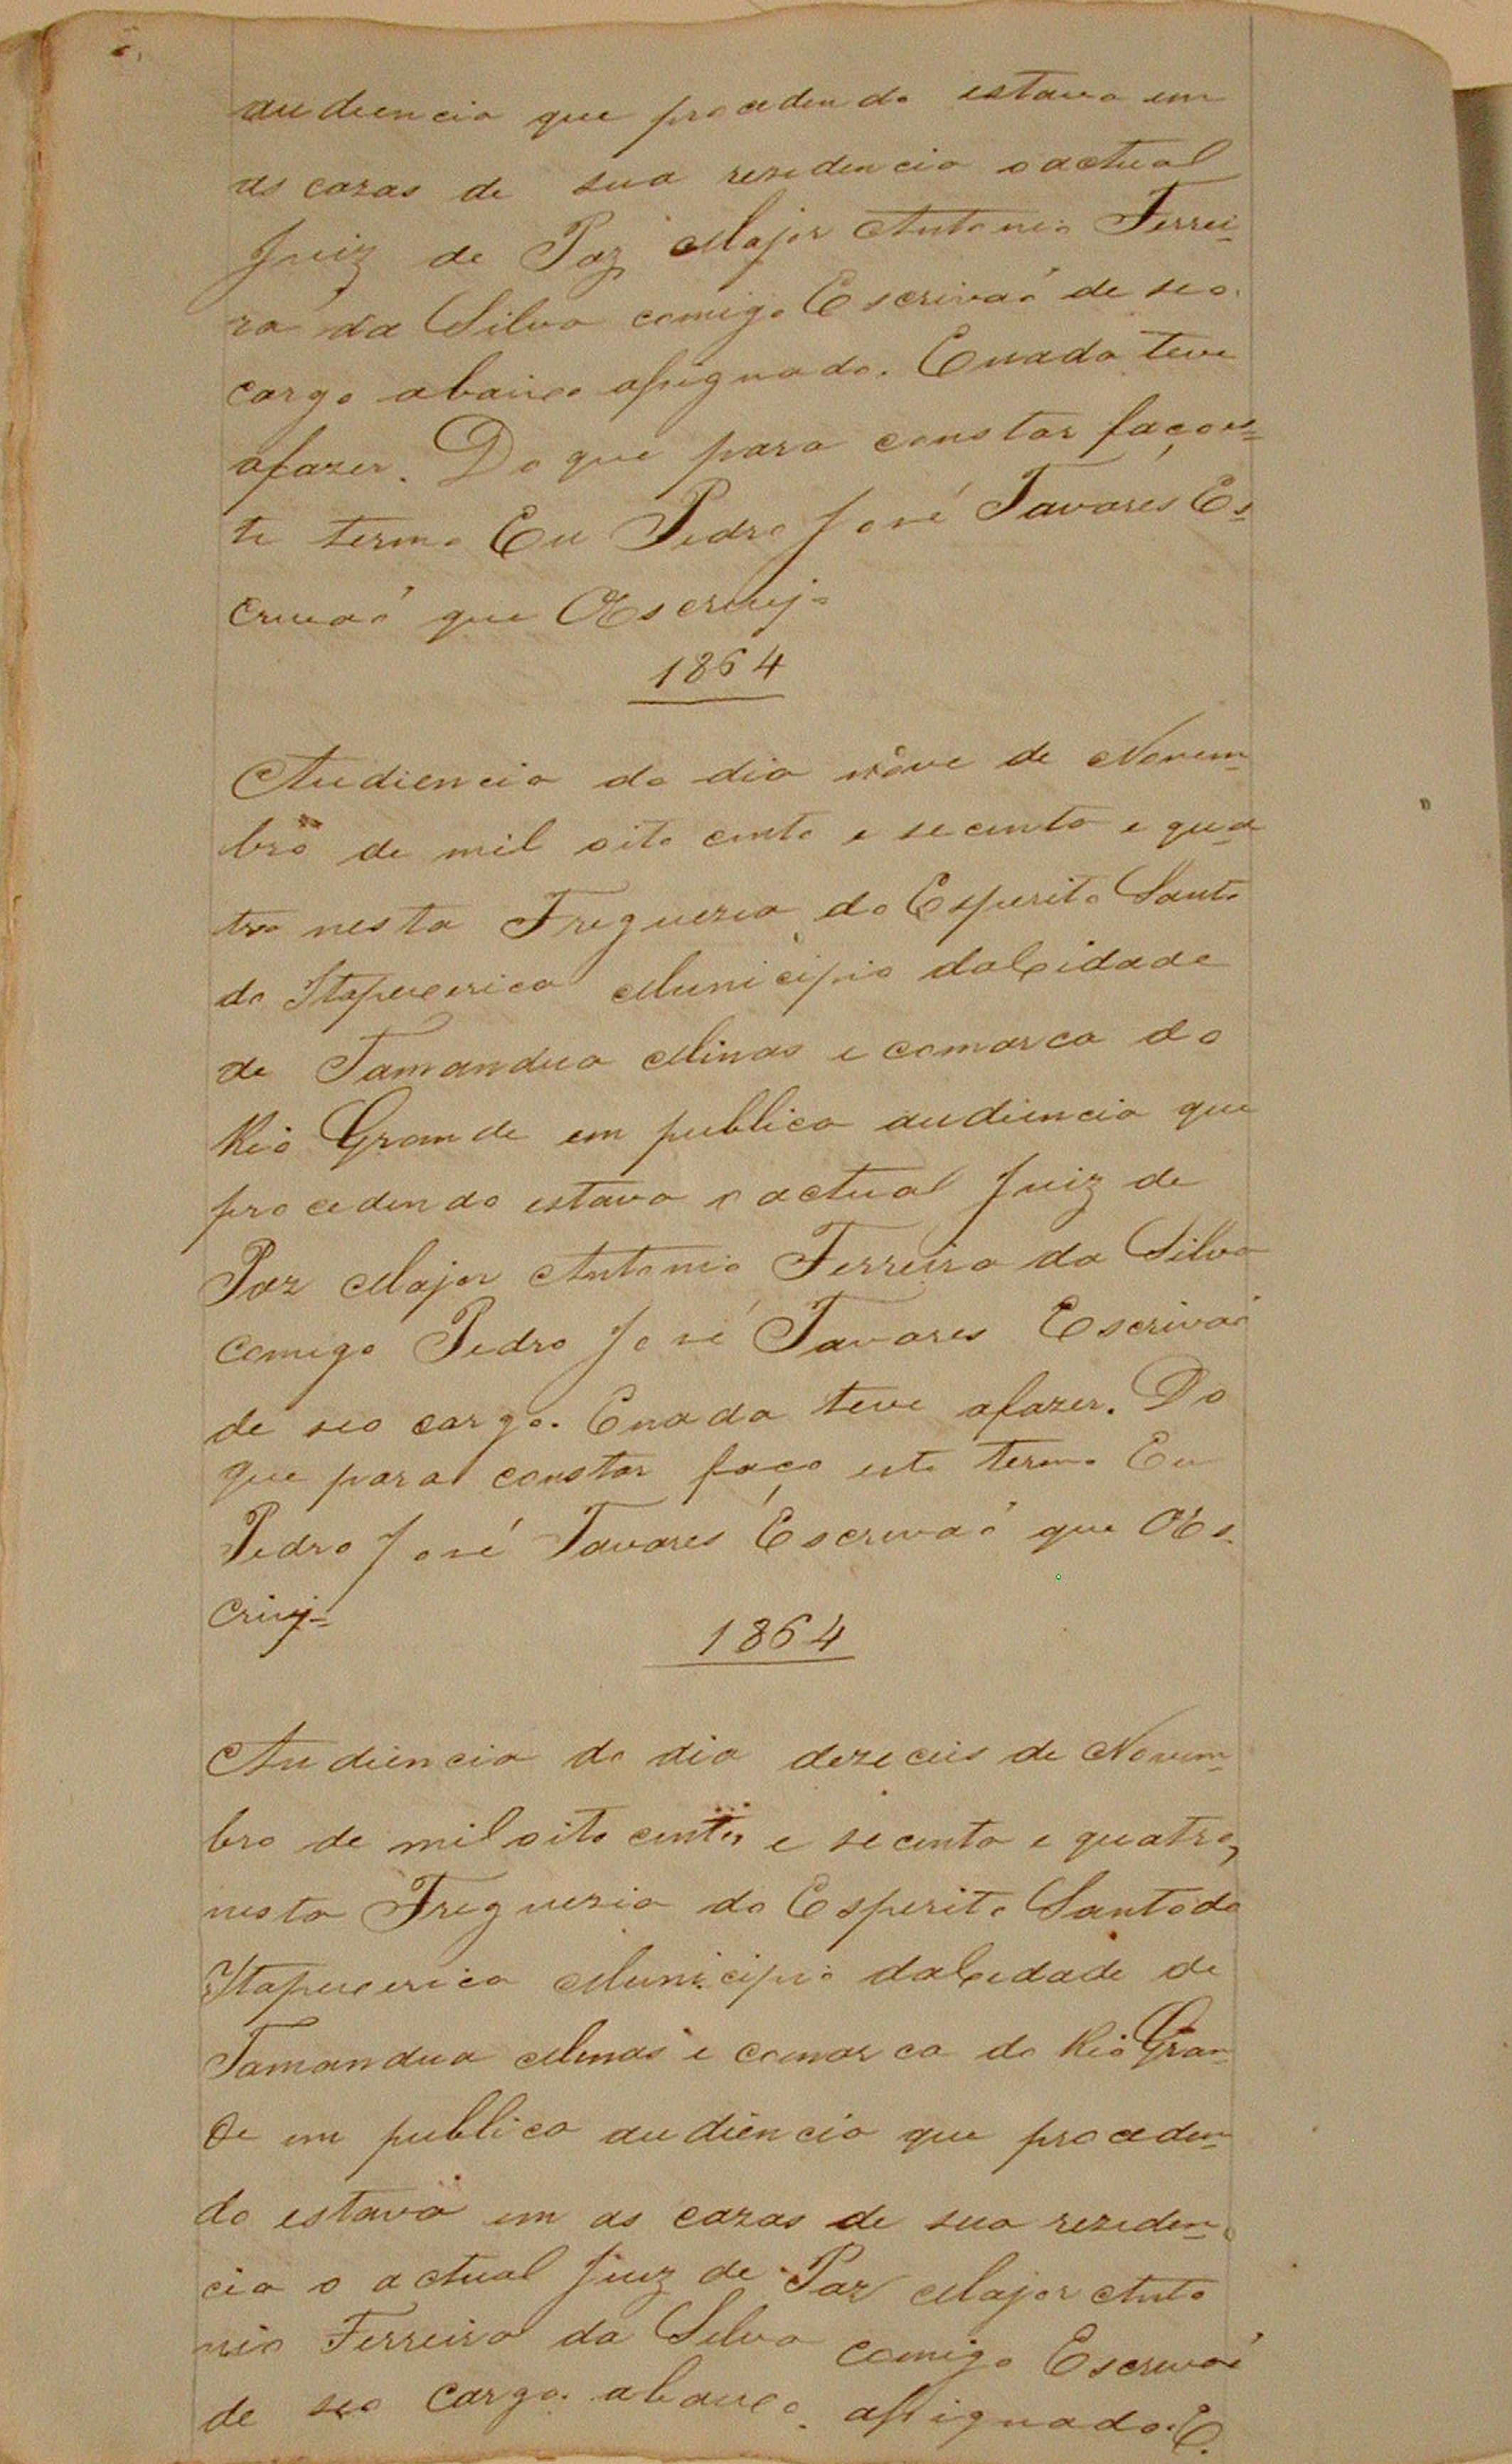 audiencia que procedendo estava em
as cazas de sua rezidencia o actual
Juiz de Paz Major Antonio Ferrei-
ra da Silva comigo Escrivaõ de seo
cargo abaixo assignado. Enada teve
afazer. Do que para constar façoes-
te termo Eu Pedro José Tavares Es-
crivaõ que OEscrivij-
1864
Audiencia do dia nove de Novem-
bro de mil oito cento e secenta e qua-
tro nesta Freguezia do Esperito Santo
do Itapecerica Municipio daCidade
de Tamandua Minas e comarca do
Rio Grande em publica audiencia que
procedendo estava o actual Juiz de
Paz Major Antonio Ferreira da Silva
comigo Pedro José Tavares Escrivaõ
de seo cargo. Enada teve afazer. Do
que para constar faço este termo Eu
Pedro José Tavares Escrivaõ que OEs-
crivij-
1864
Audiencia do dia dezeceis de Novem-
bro de mil oito centos e secenta e quatro,
nesta Freguezia do Esperito Santo do
Itapecerica Municipio daCidade de
Tamandua Minas e comarca do Rio Gran-
de em publica audiencia que proceden-
do estava em as cazas de sua reziden-
cia o actual Juiz de Paz Major Anto
nio Ferreira da Silva comigo Escrivaõ
de seo cargo abaixo assignado. E